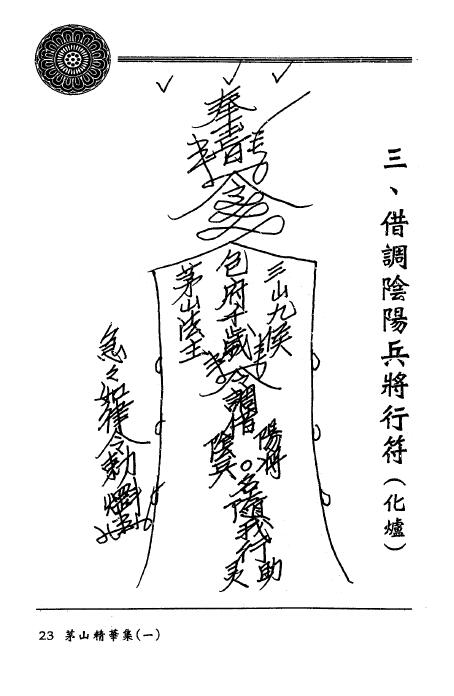 三、借調陰陽兵將行符(化爐)
奉
請
三山九侯
包府千歲
茅山法主
令調借
陽將
陰兵
名隨我行
助
灵
急々如律令勅
23 茅山精華集(一)